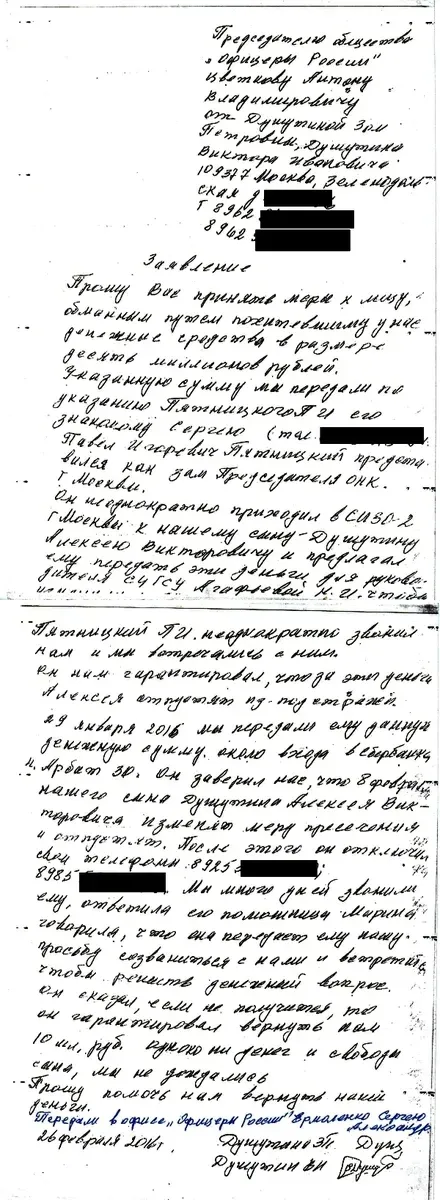 Председателю общества
"Офицеры России"
Цветкову Антону
Владимировичу
от Душутиной Зои
Петровны, Душутина
Виктора Ивановича
109377 Москва, Зеленодоль-
ская д
Т 8962
8962
Заявление
Прошу Вас принять меры к лицу,
обманным путем похитевшиму у нас
денежные средства в размере
десять миллионов рублей.
Указанную сумму мы передали по
указанию Пятницкого П И его
знакому Сергею (тел.
Павел Игоревич Пятницкий предста
вился как зам Председателя ОНК.
г Москвы.
Он неоднократно приходил в СИЗО-2
г Москвы к нашему сыну-Душутину
Алексею Викторовичу и предлагал
ему передать эти деньги для руково-
дителя СУ ГСУ Агафьевой Н.И. чтобы
Пятницкий П И. неоднократно звонил
нам и мы встречались с ним.
Он нам гарантировал, что за эти деньги
Алексея отпустят из-под стражи.
29 января 2016 мы передали ему данную
денежную сумму около входа в Сбербанк
н. Арбат 30. Он заверил нас, что 8 февраля
нашего сына Душутина Алексея Вик-
торовича изменят меру пресечения
и отпустят. После этого он отключил
свои телефоны 8925
8985 . Мы много дней звонили
ему, ответила его помощница Марина
говорила, что она передает ему нашу
просьбу созвониться с нами и встретить
чтобы решить денежный вопрос.
Он сказал, если не получится, то
он гарантировал вернуть нам
10 мл. руб. одноко ни денег и свободы
сына, мы не дождались
Прошу помочь нам вернуть наши
деньги.
Передали в офисе "Офицеры России" Ермоленко Сергею
Александр
26 февраля 2016 г. Душутина ЗП
Душутин ВИ